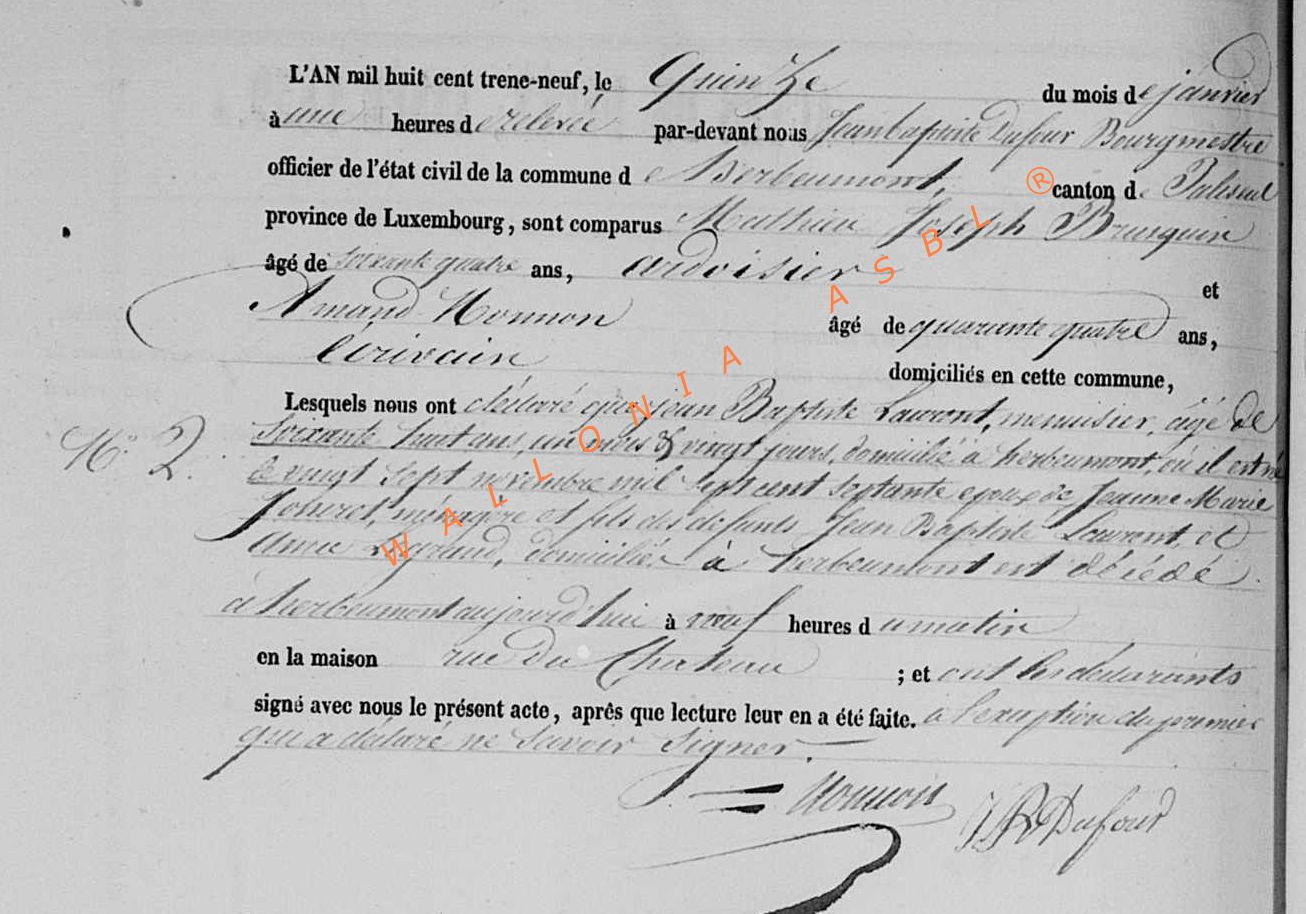 L'AN mil huit cent trene-neuf, le Quinze du mois de janvier
à une heures de relevée par-devant nous Jeanbaptiste Dufour Bourgmestre
officier de l'état civil de la commune de Herbeumont, canton de Paliseul
province de Luxembourg, sont comparus Mathieu Joseph Brusquin
âgé de soixante quatre ans, ardoisier et
Amand Monnon âgé de quarante quatre ans,
écrivain domiciliés en cette commune,
Lesquels nous ont déclaré que jean Baptiste Laurent, menuisier, agé de
soixante huit ans, un mois & vingt jours, domicilié à herbeumont, où il est né
le vingt sept novembre mil sept cent septante epoux de Jeanne Marie
ménagère et fils des defunts Jean Baptiste Laurent, et
Anne domiciliés à herbeumont est décédé
N° 2.
à herbeumont aujourd'hui à neuf heures du matin
en la maison rue du Chateau ; et ont les déclarants
signé avec nous le présent acte, après que lecture leur en a été faite. a l'exeption du premier
qui a déclaré ne savoir signer.
Monnon JB Dufour
WALLONIA ASBL ®